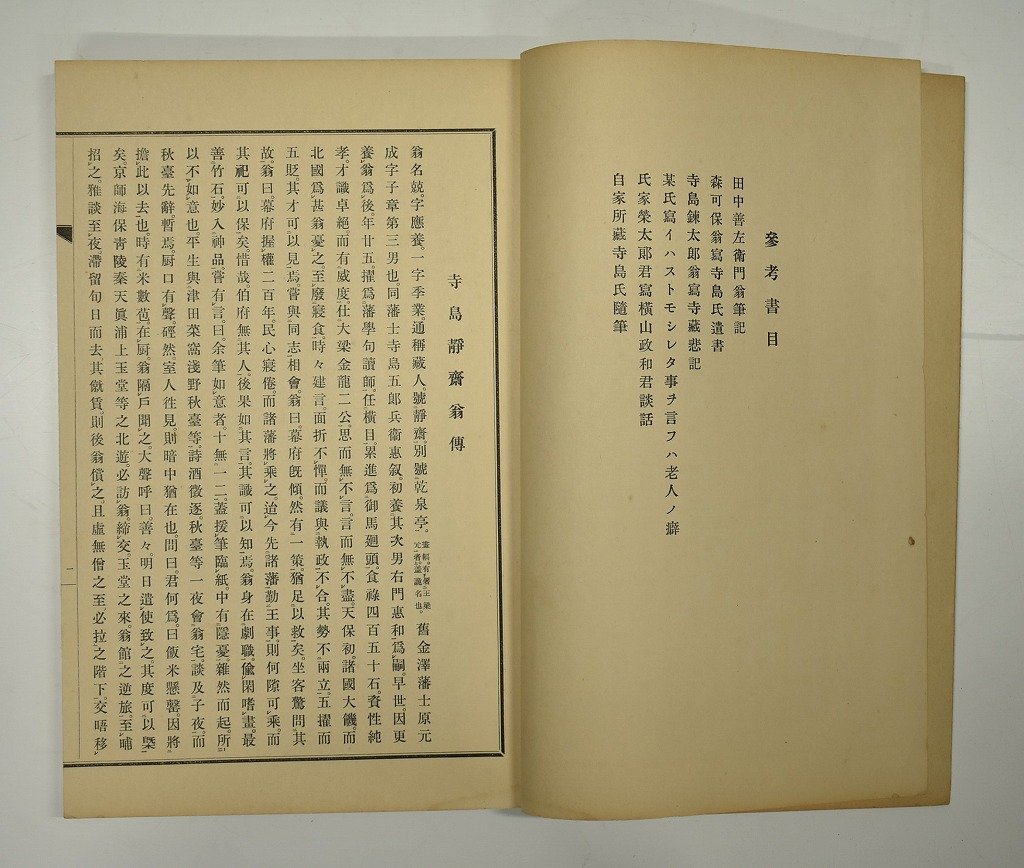 參考書目
田中善左衛門翁筆記
森可保翁寫寺島氏遺書
寺島錬太郎翁寫寺藏悲記
某氏寫イハストモシレタ事ヲ言フハ老人ノ癖
氏家榮太郎君寫橫山政和君談話
自家所藏寺島氏隨筆
寺島靜齋翁傳
翁名兢。字應養。一字季業。通稱藏人。號靜齋。別號乾泉亭。畫幅。有署王梁元者。蓋譌名也。舊金澤藩士原元
成字子章第三男也。同藩士寺島五郎兵衞惠叙。初養其次男右門惠和爲嗣。早世。因更
養翁爲後。年廿五。擢爲藩學句讀師。任橫目。累進爲御馬廻頭。食祿四百五十石。資性純
孝。才識卓絕而有威度。仕大梁金龍二公。思而無不言。言而無不盡。天保初。諸國大饑。而
北國爲甚翁憂之至廢寢食。時々建言。面折不憚。而議與執政不合。其勢不兩立。五擢而
五貶。其才可以見焉。嘗與同志相會。翁曰。幕府旣傾。然有一策。猶足以救矣。坐客驚問其
故。翁曰。幕府握權二百年。民心寢倦。而諸藩將乘之。迨今先諸藩勤王事。則何隙可乘。而
其祀可以保矣。惜哉。伯府無其人。後果如其言。其識可以知焉。翁身在劇職。偸閑嗜畫。最
善竹石。妙入神品。嘗有言。曰。余筆如意者。十無一二。蓋援筆臨紙。中有隱憂。雜然而起。所
以不如意也。平生與津田菜窩淺野秋臺等。詩酒徵逐。秋臺等一夜會翁宅。談及子夜。而
秋臺先辭。暫焉。厨口有聲。硜然。室人往見。則暗中猶在也。問曰。君何爲。曰飯米懸罄。因將
擔此以去也。時有米數苞。在厨。翁隔戶聞之。大聲呼曰。善々。明日遣使致之。其度可以槩
矣。京師海保靑陵秦天眞浦上玉堂等之北遊。必訪翁。締交。玉堂之來。翁館之逆旅。至哺
招之。雅談至夜。滯留旬日而去。其僦賃。則後翁償之。且虛無僧之至。必拉之階下。交晤移
一